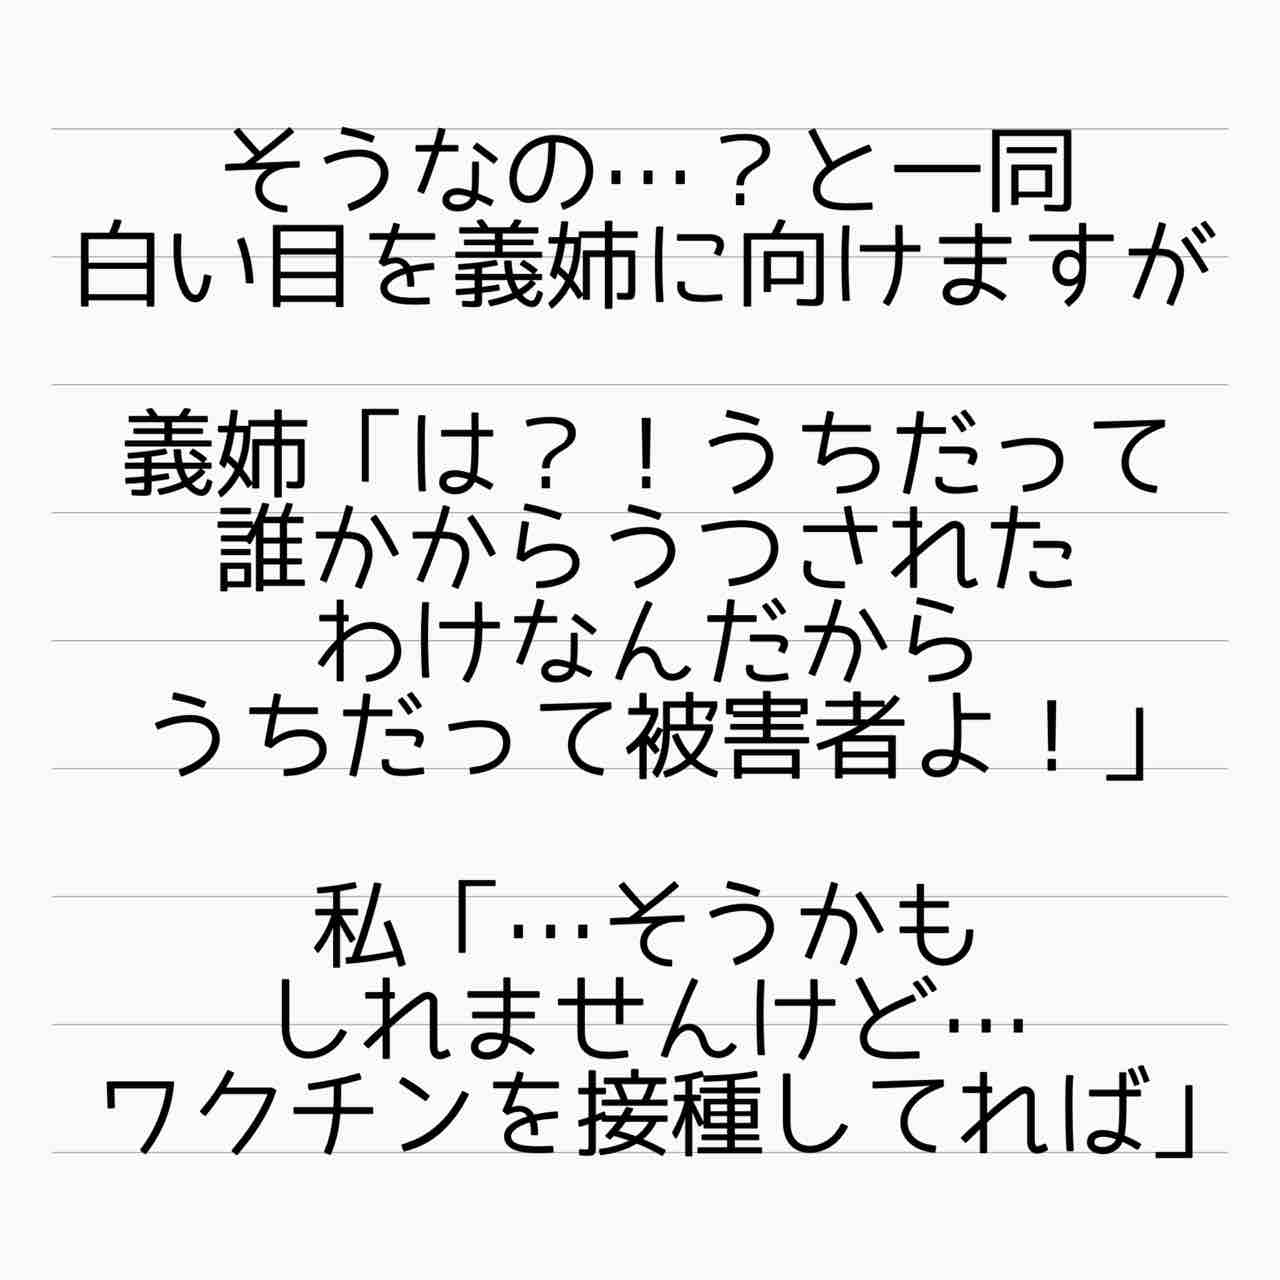 そうなの…？と一同
白い目を義姉に向けますが
義姉「は？！うちだって
誰かからうつされた
わけなんだから
うちだって被害者よ！」
私「…そうかも
しれませんけど…
ワクチンを接種してれば」